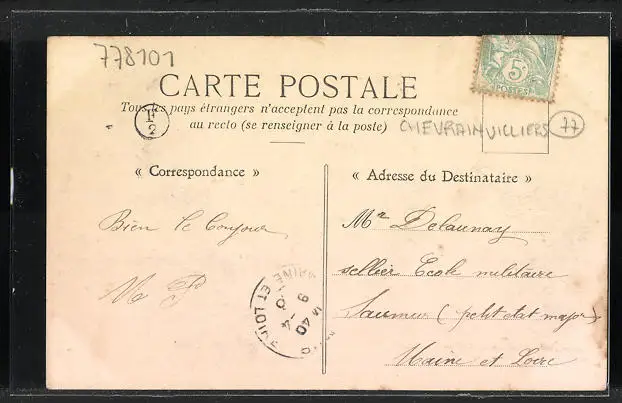 778101
5c
POSTES
CARTE POSTALE
Tous les pays étrangers n'acceptent pas la correspondance
au recto (se renseigner à la poste)
F
2
CHEVRAINVILLIERS 77
« Correspondance »
« Adresse du Destinataire »
Bien le bonjour
Mr Delaunay
sellier Ecole militaire
Saumur (petit etat major)
Maine et Loire
ET LOIR
9 -4